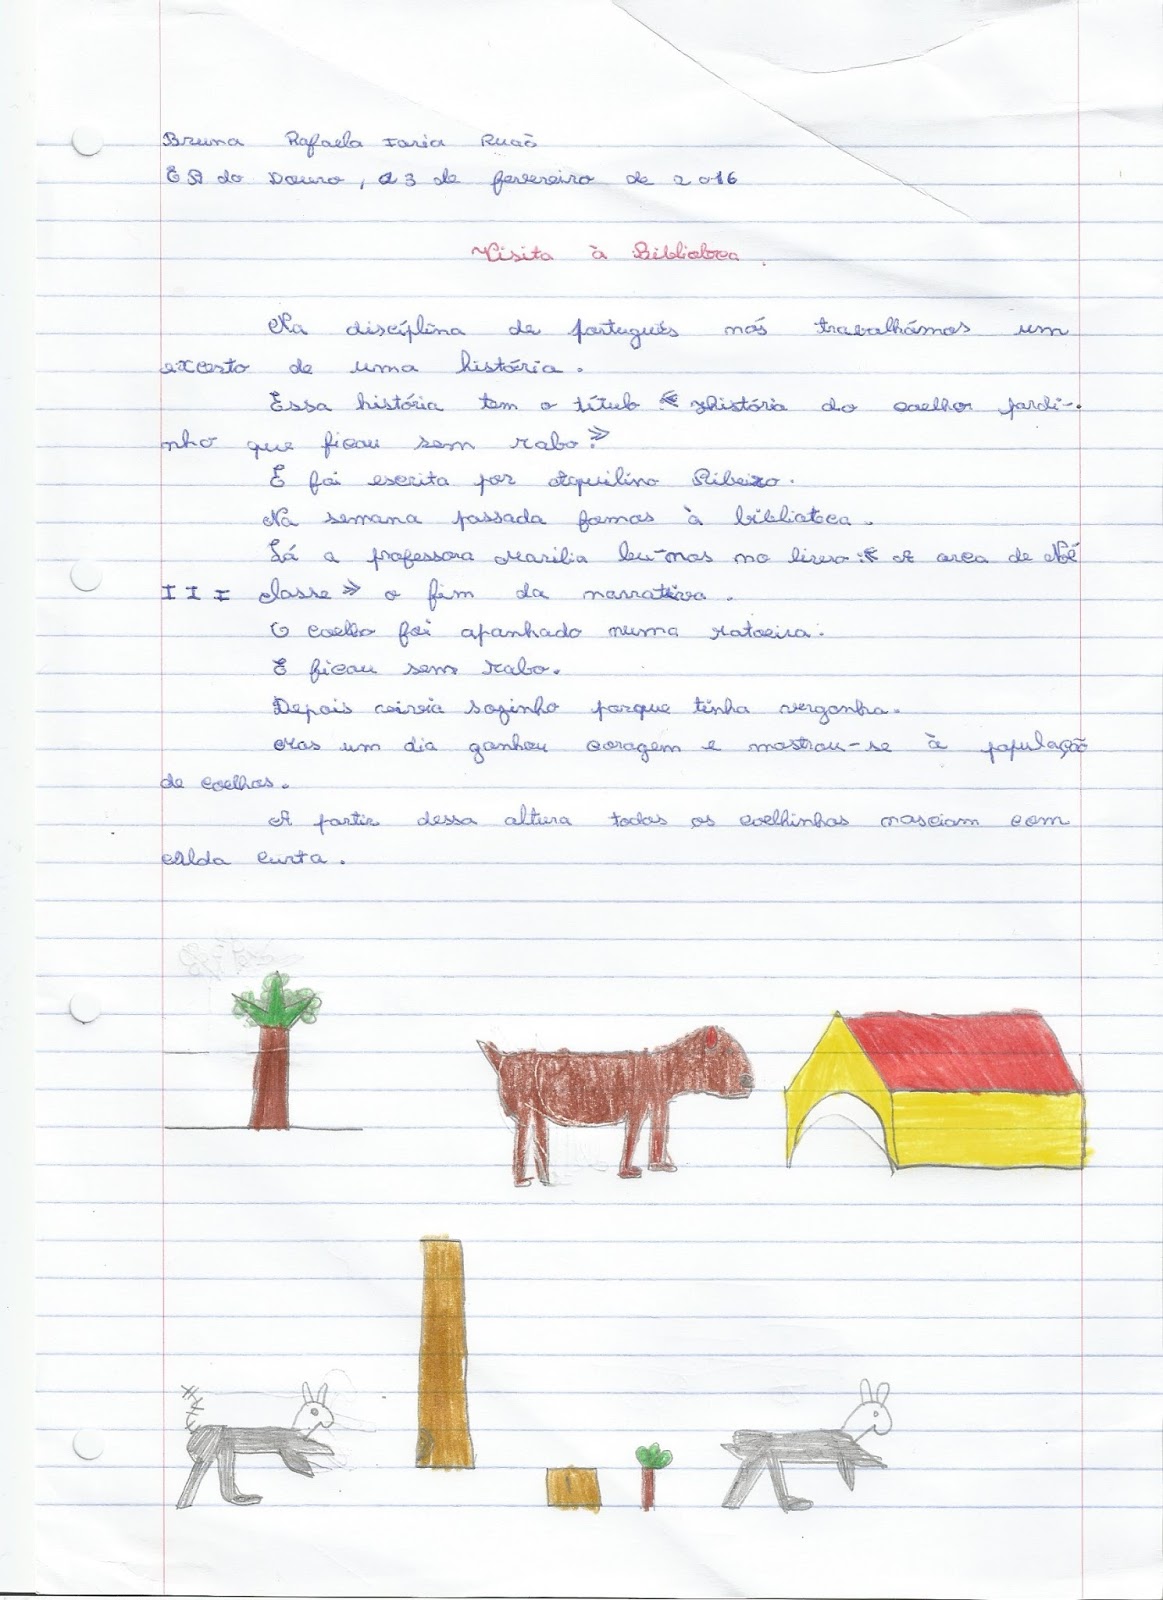 Bruna Rafaela Faria Ruão
E B do Douro, 23 de fevereiro de 2016
Visita à Biblioteca.
Na disciplina de português nós trabalhámos um
excerto de uma história.
Essa história tem o título «História do coelho pardi-
nho que ficou sem rabo».
E foi escrita por Aquilino Ribeiro.
Na semana passada fomos à biblioteca.
Lá a professora Marília leu-nos no livro: « A arca de Noé
III classe» o fim da narrativa.
O coelho foi apanhado numa ratoeira.
E ficou sem rabo.
Depois vivia sozinho porque tinha vergonha.
Mas um dia ganhou coragem e mostrou-se à população
de coelhos.
A partir dessa altura todos os coelhinhos nasciam com
calda curta.